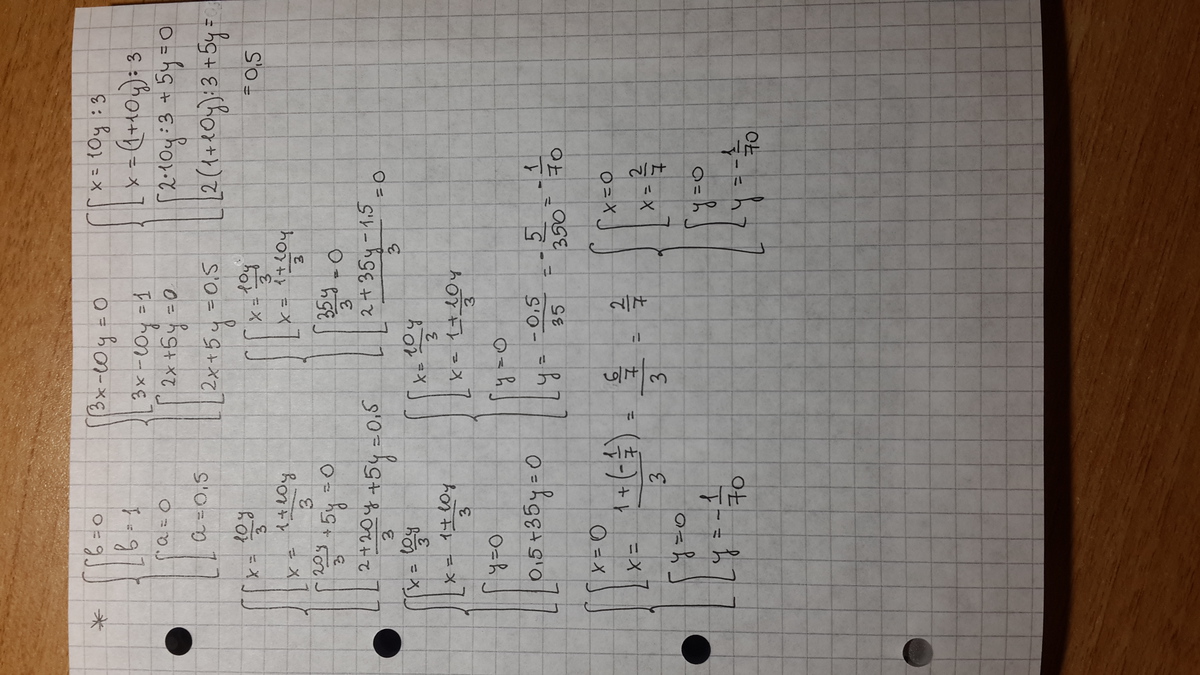 * {[b=0
[b=1
[a=0
[a=0,5
{[3x-10y=0
[3x-10y=1
[2x+5y=0
[2x+5y=0,5
{[x=10y:3
[x=(1+10y):3
[2·10y:3+5y=0
[2(1+10y):3+5y=
=0,5
{[x=10y/3
[x=(1+10y)/3
[20y/3+5y=0
[(2+20y)/3+5y=0,5
{[x=10y/3
[x=(1+10y)/3
[35y/3=0
[(2+35y-1,5)/3=0
{[x=10y/3
[x=(1+10y)/3
[y=0
[0,5+35y=0
{[x=10y/3
[x=(1+10y)/3
[y=0
[y=-0,5/35=-5/350=-1/70
{[x=0
[x=(1+(-1/7))/3=(6/7)/3=2/7
[y=0
[y=-1/70
{[x=0
[x=2/7
[y=0
[y=-1/70